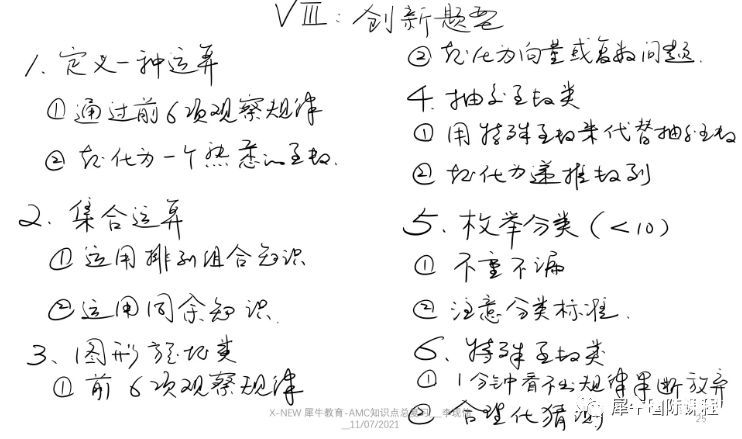 VIII：创新题型
1、定义一种运算
① 通过前6项观察规律
② 转化为一个熟悉的函数.
2、集合运算
① 运用排列组合知识
② 运用同余知识.
3、图形变换类
① 前6项观察规律
② 转化为向量或复数问题.
4、抽象函数类
① 用特殊函数来代替抽象函数
② 转化为递推数列
5、枚举分类（<10）
① 不重不漏
② 注意分类标准.
6、特殊函数类
① 1分钟看不出规律果断放弃
② 合理化猜测
X-NEW 犀牛教育-AMC知识点总
__11/07/2021
犀牛国际课程